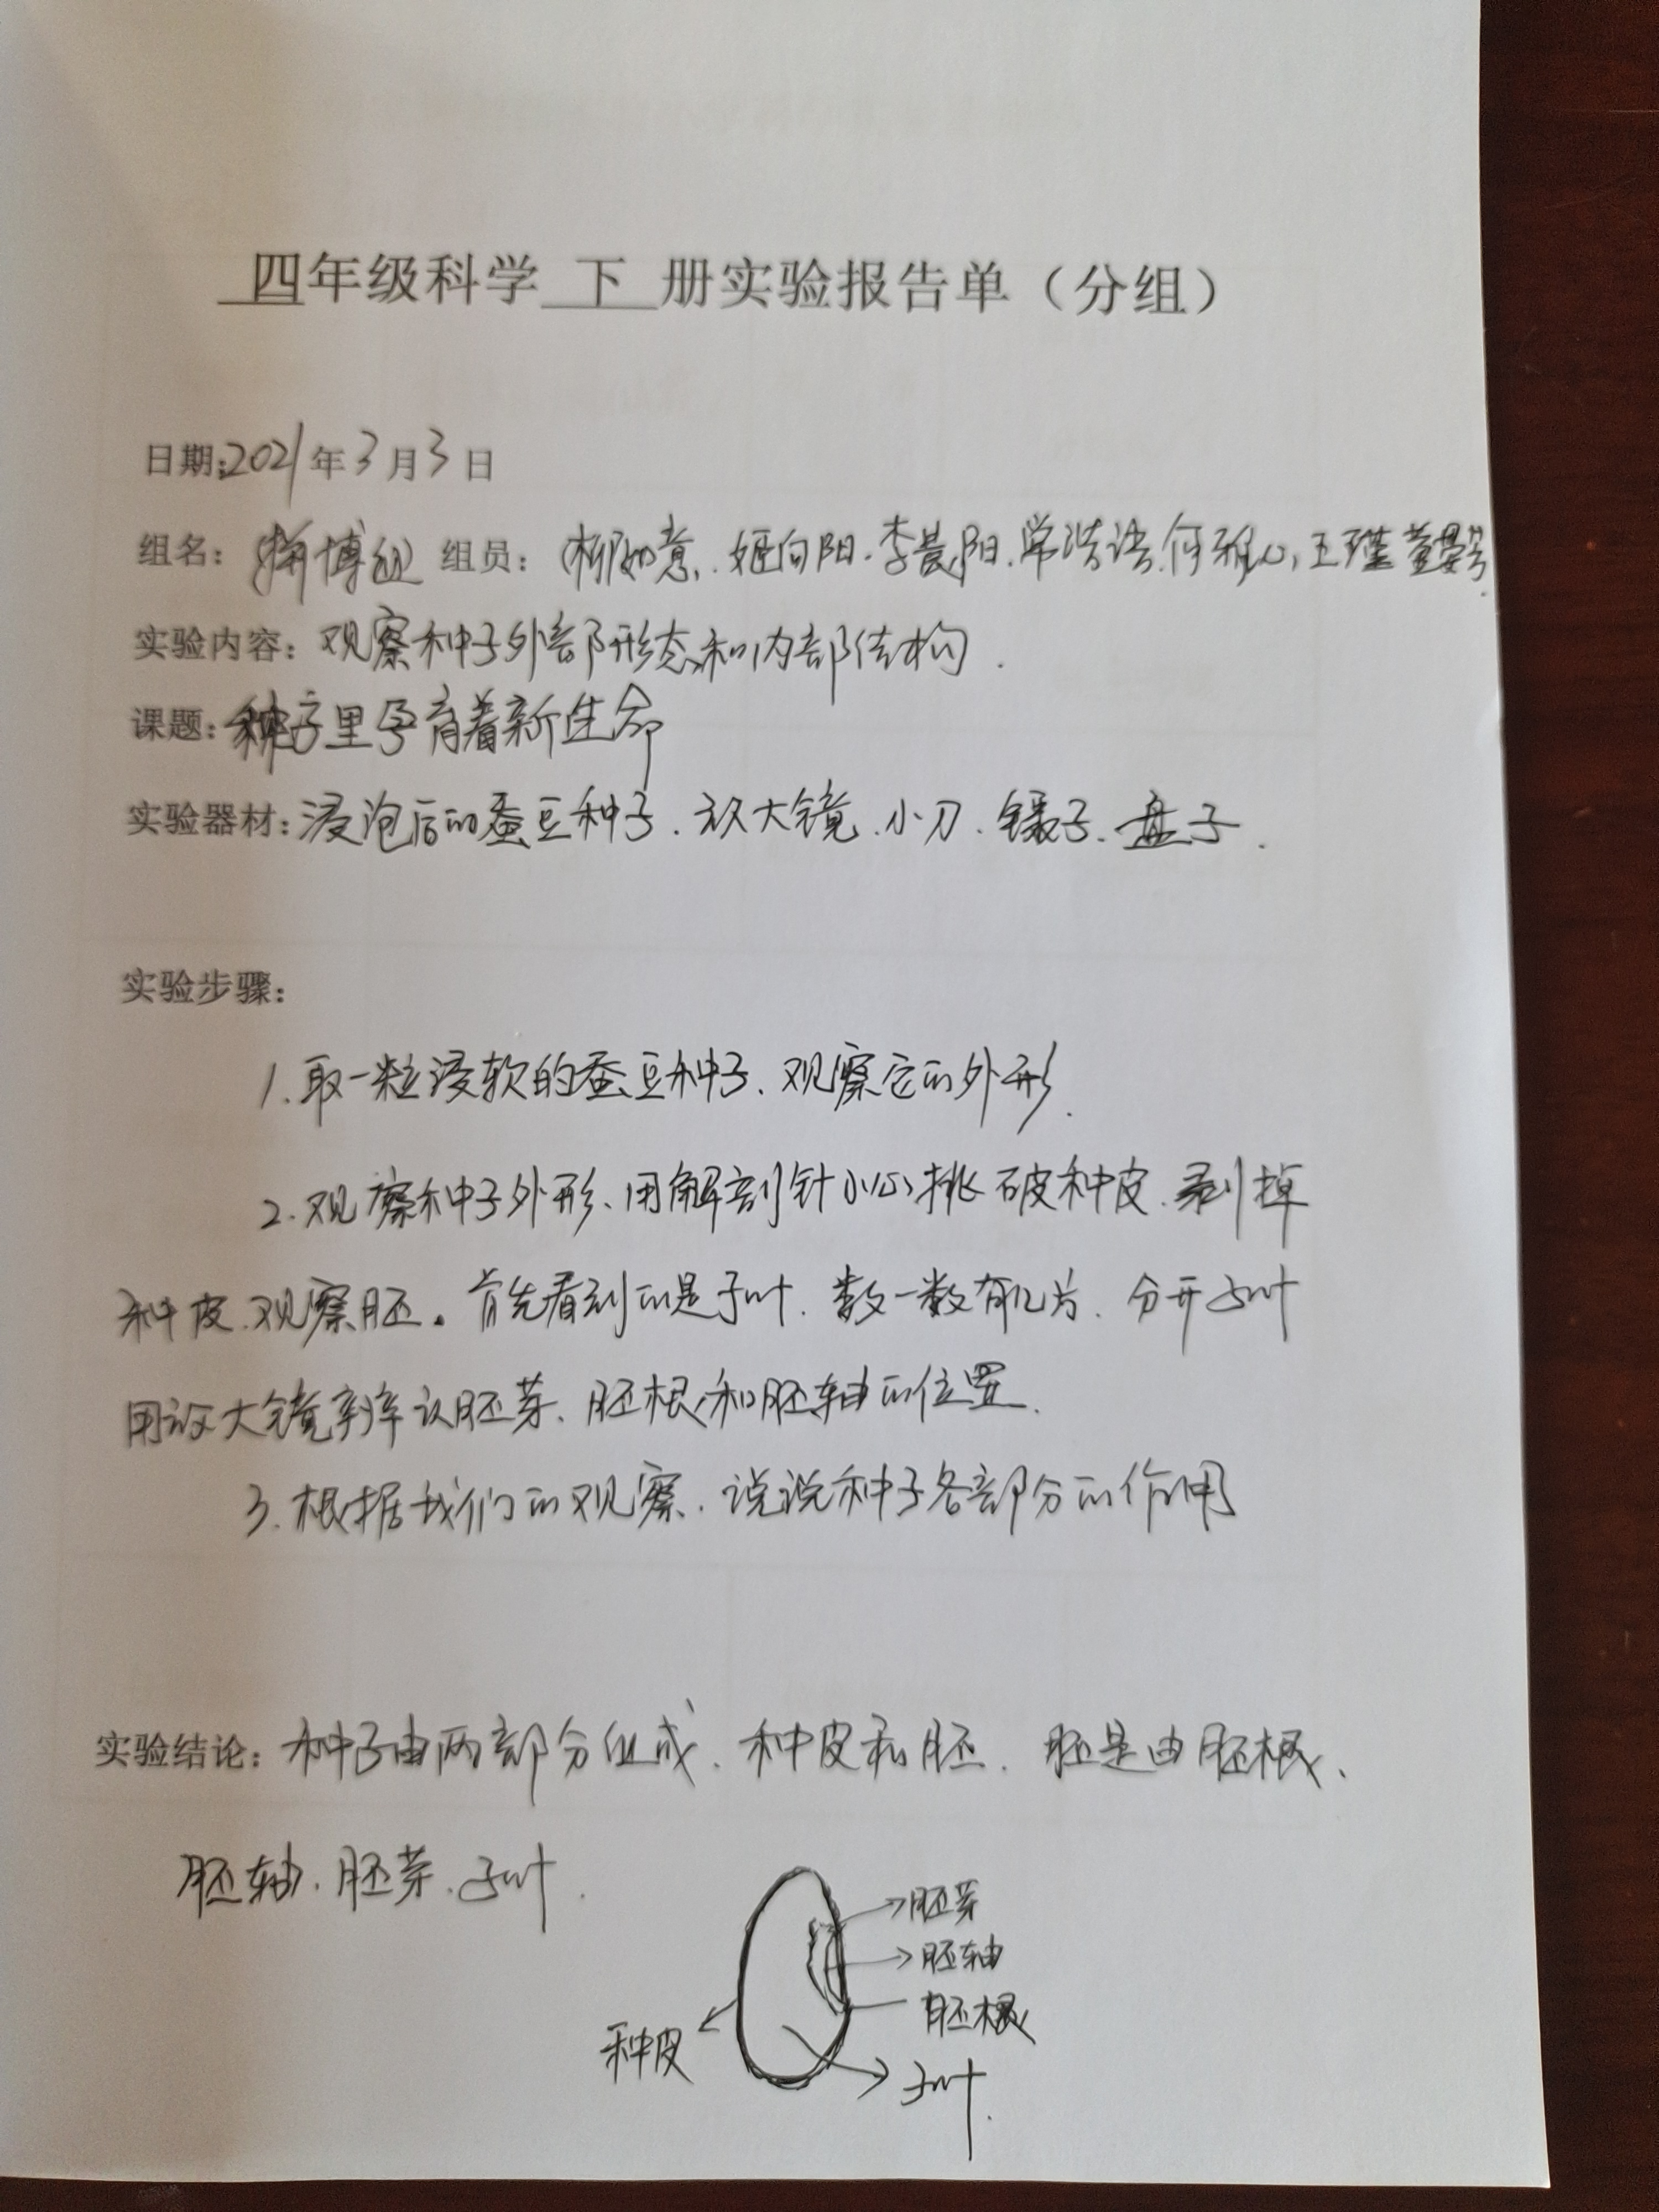 四年级科学 下 册实验报告单（分组）
日期:2021年3月3日
组名： 博组 组员： 柳如意、姬向阳.李晨阳.常浩语.何雅心,王瑾
实验内容：观察种子外部形态和内部结构.
课题：种子里孕育着新生命
实验器材：浸泡后的蚕豆种子.放大镜.小刀.镊子.盘子.
实验步骤：
1.取一粒浸软的蚕豆种子、观察它的外形.
2.观察种子外形、用解剖针小心挑破种皮.剥掉
种皮.观察胚。首先看到的是子叶.数一数有几片.分开子叶
用放大镜辨认胚芽、胚根和胚轴的位置.
3.根据我们的观察.说说种子各部分的作用
实验结论：种子由两部分组成、种皮和胚. 胚是由胚根、
胚轴.胚芽.子叶.
胚芽
胚轴
胚根
种皮
子叶.